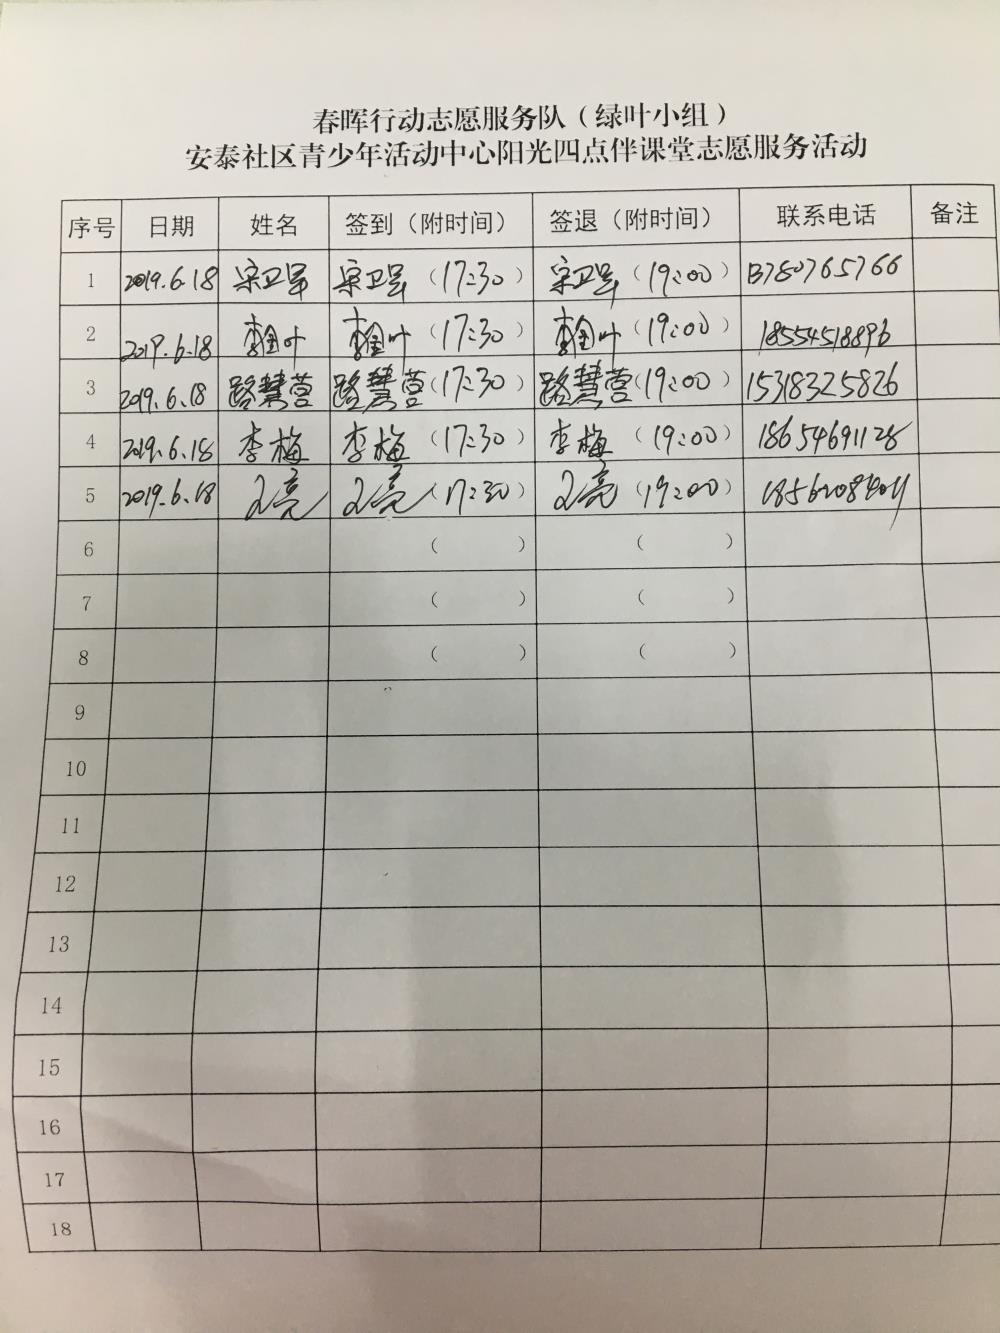 春晖行动志愿服务队（绿叶小组）
安泰社区青少年活动中心阳光四点伴课堂志愿服务活动
序号 日期 姓名 签到（附时间） 签退（附时间） 联系电话 备注
1 2019.6.18 宋卫军 宋卫军（17:30） 宋卫军（19:00） 13780765766
2 2019.6.18 李金叶 李金叶（17:30） 李金叶（19:00） 18554518896
3 2019.6.18 路慧营 路慧营（17:30） 路慧营（19:00） 15318325826
4 2019.6.18 李梅 李梅（17:30） 李梅（19:00） 18654691128
5 2019.6.18 （17:30） （19:00）
6 （ ） （ ）
7 （ ） （ ）
8 （ ） （ ）
9
10
11
12
13
14
15
16
17
18